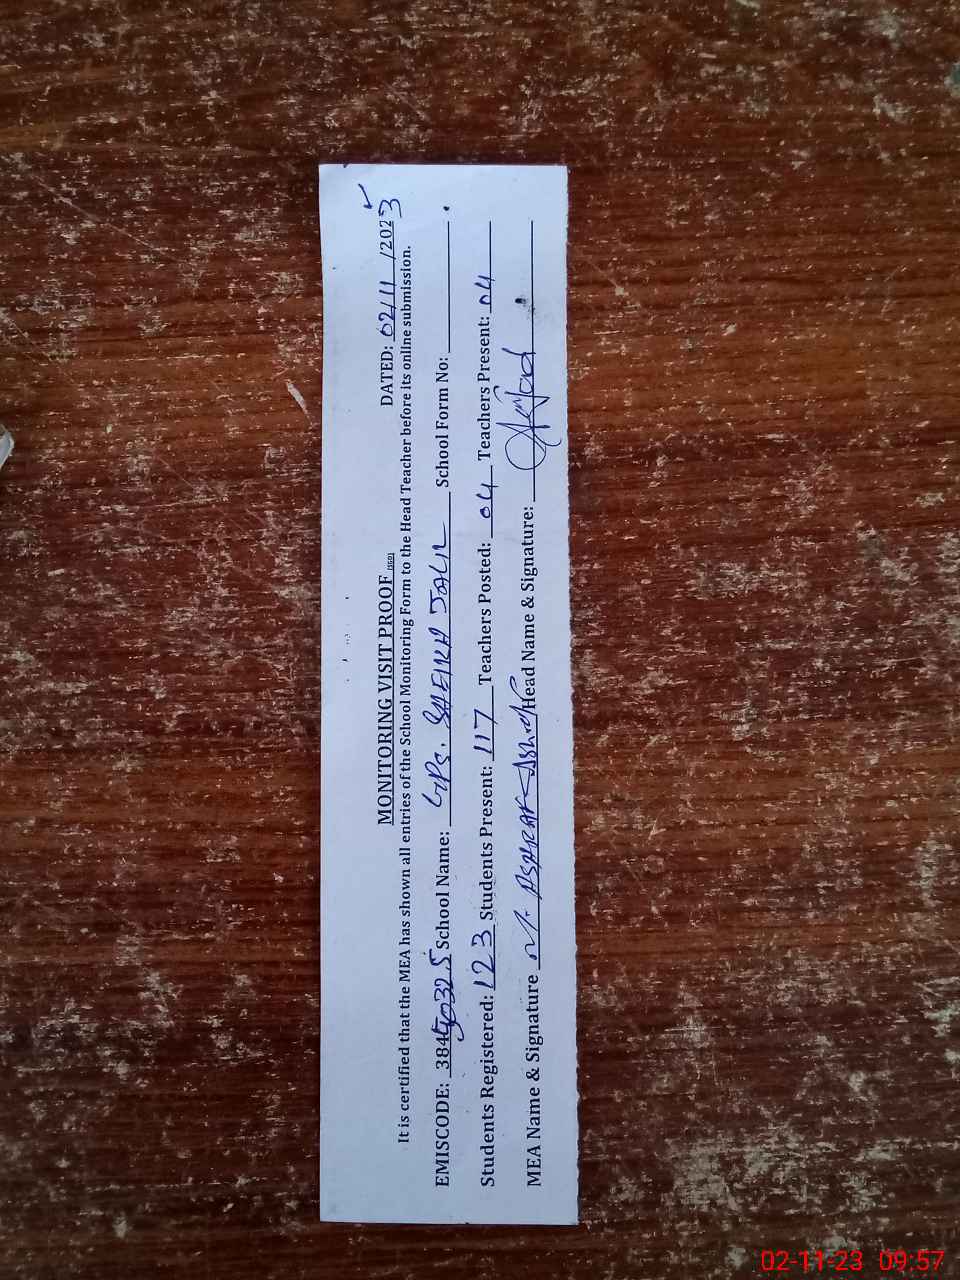 MONITORING VISIT PROOF (SED) DATED: 02/11/2023
It is certified that the MEA has shown all entries of the School Monitoring Form to the Head Teacher before its online submission.
EMISCODE: 384 School Name: GPS. SHEIKH JALIL School Form No:
Students Registered: 123 Students Present: 117 Teachers Posted: 04 Teachers Present: 04
MEA Name & Signature M. ASHRAF Ashraf Head Name & Signature: Amjad
02-11-23 09:57